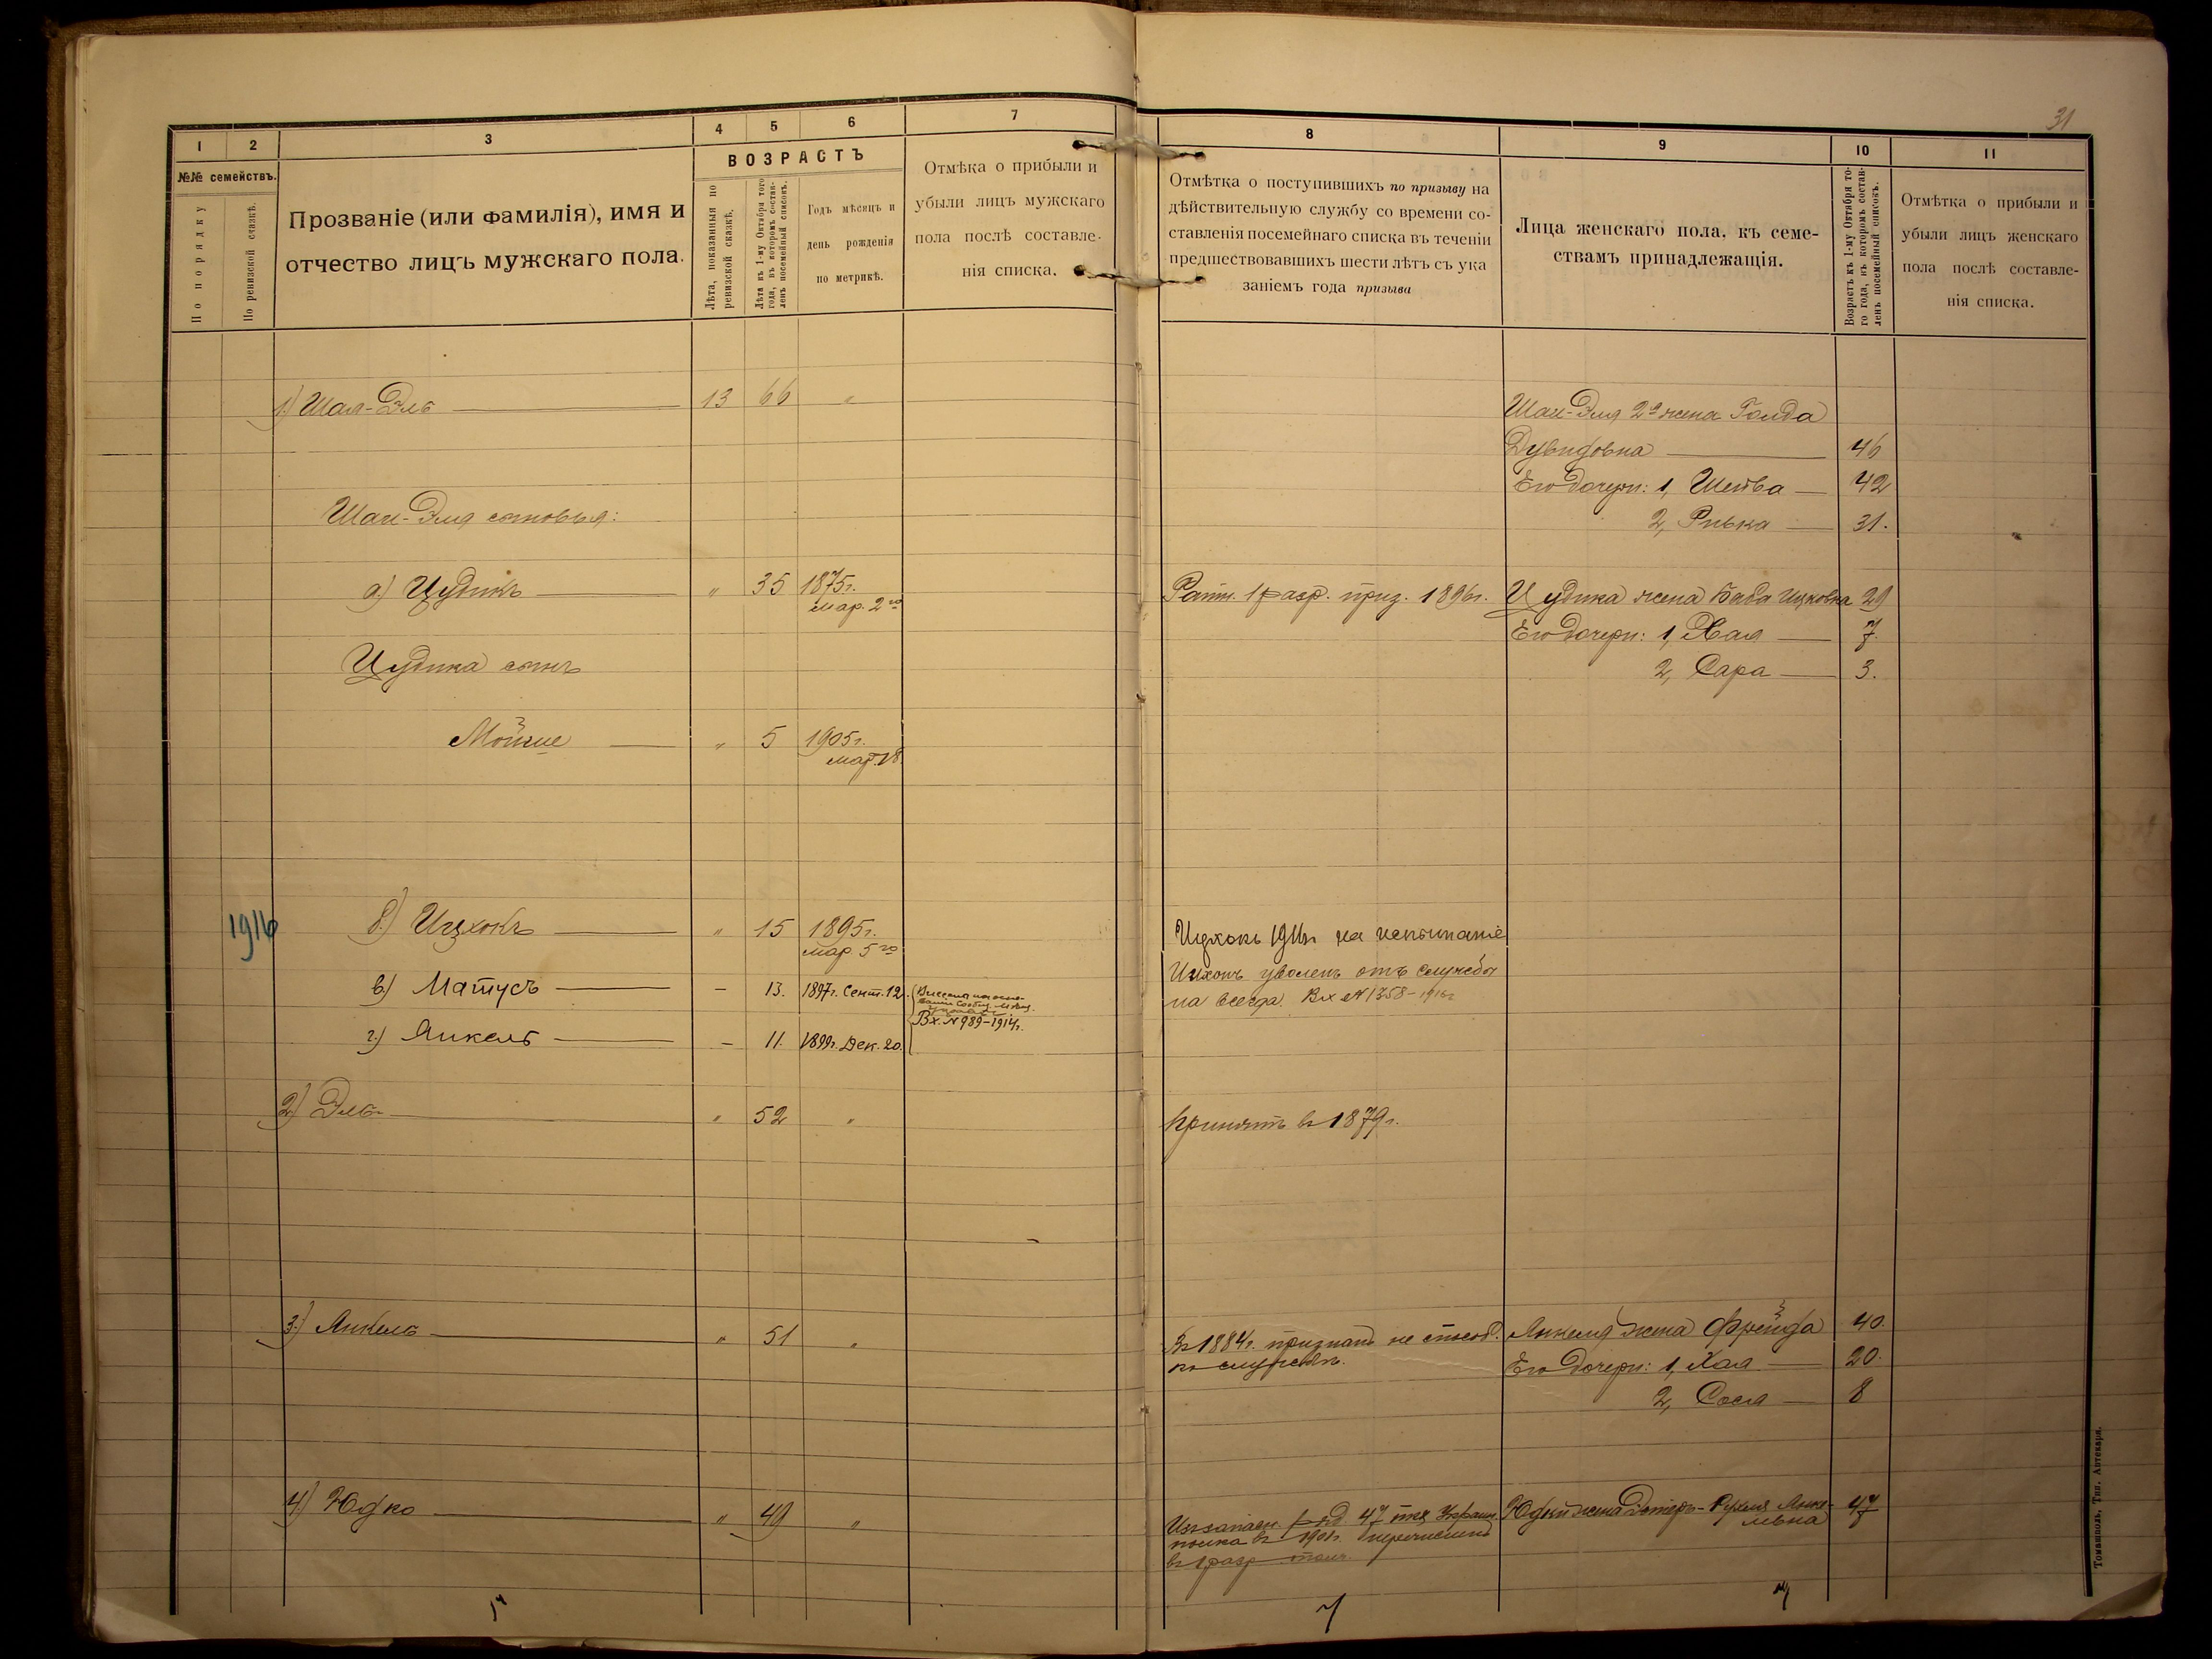 31
1 2 3 4 5 6 7
№№ семействъ.
По порядку
По ревизской сказкѣ.
Прозваніе (или фамилія), имя и
отчество лицъ мужскаго пола.
ВОЗРАСТЪ
Лѣта, показанныя по
ревизской сказкѣ.
Лѣта къ 1-му Октября того
года, въ которомъ состав-
ленъ посемейный списокъ.
Годъ мѣсяцъ и
день рожденія
по метрикѣ.
Отмѣка о прибыли и
убыли лицъ мужскаго
пола послѣ составле-
нія списка.
8 9 10 11
Отмѣтка о поступившихъ по призыву на
дѣйствительную службу со времени со-
ставленія посемейнаго списка въ теченіи
предшествовавшихъ шести лѣтъ съ ука
заніемъ года призыва
Лица женскаго пола, къ семе-
ствамъ принадлежащія.
Возрастъ къ 1-му Октября то-
го года, въ которомъ состав-
ленъ посемейный списокъ.
Отмѣтка о прибыли и
убыли лицъ женскаго
пола послѣ составле-
нія списка.
1) Шая-Эль 13 66 "
Шаи-Эля сыновья:
а) Цудикъ " 35 1875г.
мар. 2го
Цудика сынъ
Мойше " 5 1905г.
мар. 18.
1916 б) Ицхокъ " 15 1895г.
мар. 5го
в) Матусъ - 13. 1897г. Сент. 12.
Вх. № 989-1914г.
г) Янкель - 11. 1899г. Дек. 20.
2) Эль " 52 "
3) Янкель " 51 "
4) Юдко " 49 "
Шаи-Эля 2я жена Голда
Дувидовна 46
Его дочери: 1, Шейва 42
2, Ривка 31.
Ратн. 1 разр. приз. 1896г. Цудика жена Баба Ицковна 29
Его дочери: 1, Хая 7.
2, Сара 3.
Ицхокъ 1916г на испытаніе
Ицхокъ уволенъ отъ службы
на всегда. Вх № 1358-1916г
Принятъ въ 1879г.
Въ 1884г. признанъ не способ. Янкеля жена Фрейда 40.
къ службѣ. Его дочери: 1, Хая 20.
2, Сося 8
47 Юдки жена Рухля Янке- 47
льна
въ 1901г. перечисленъ
въ 1 разр
Томашполь, Тип. Аптекаря.